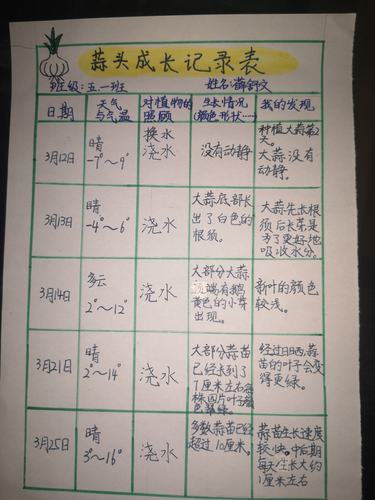 蒜头成长记录表
班级:五一班
姓名:薛舒文
日期
天气
与气温
对植物的
照顾
生长情况
(颜色形状……)
我的发现
3月12日
晴
-7°～9°
换水
浇水
没有动静
种植大蒜第2
天。
大蒜没有
动静。
3月13日
晴
-4°～6°
浇水
大蒜底部长
出了白色的
根须。
大蒜先长根
须后长芽是
为了更好地
吸收水分。
3月14日
多云
2°～12°
浇水
大部分大蒜
顶端有鹅
黄色的小芽
出现。
新叶的颜色
较浅。
3月21日
晴
2°～14°
浇水
大部分蒜苗
已经长到了
7厘米左右
株四片叶子
经过日晒,蒜
苗的叶子会变
得更绿。
3月25日
晴
3°～16°
浇水
多数蒜苗已经
超过10厘米。
蒜苗生长速度
较快。中后期
每天生长大约
1厘米左右